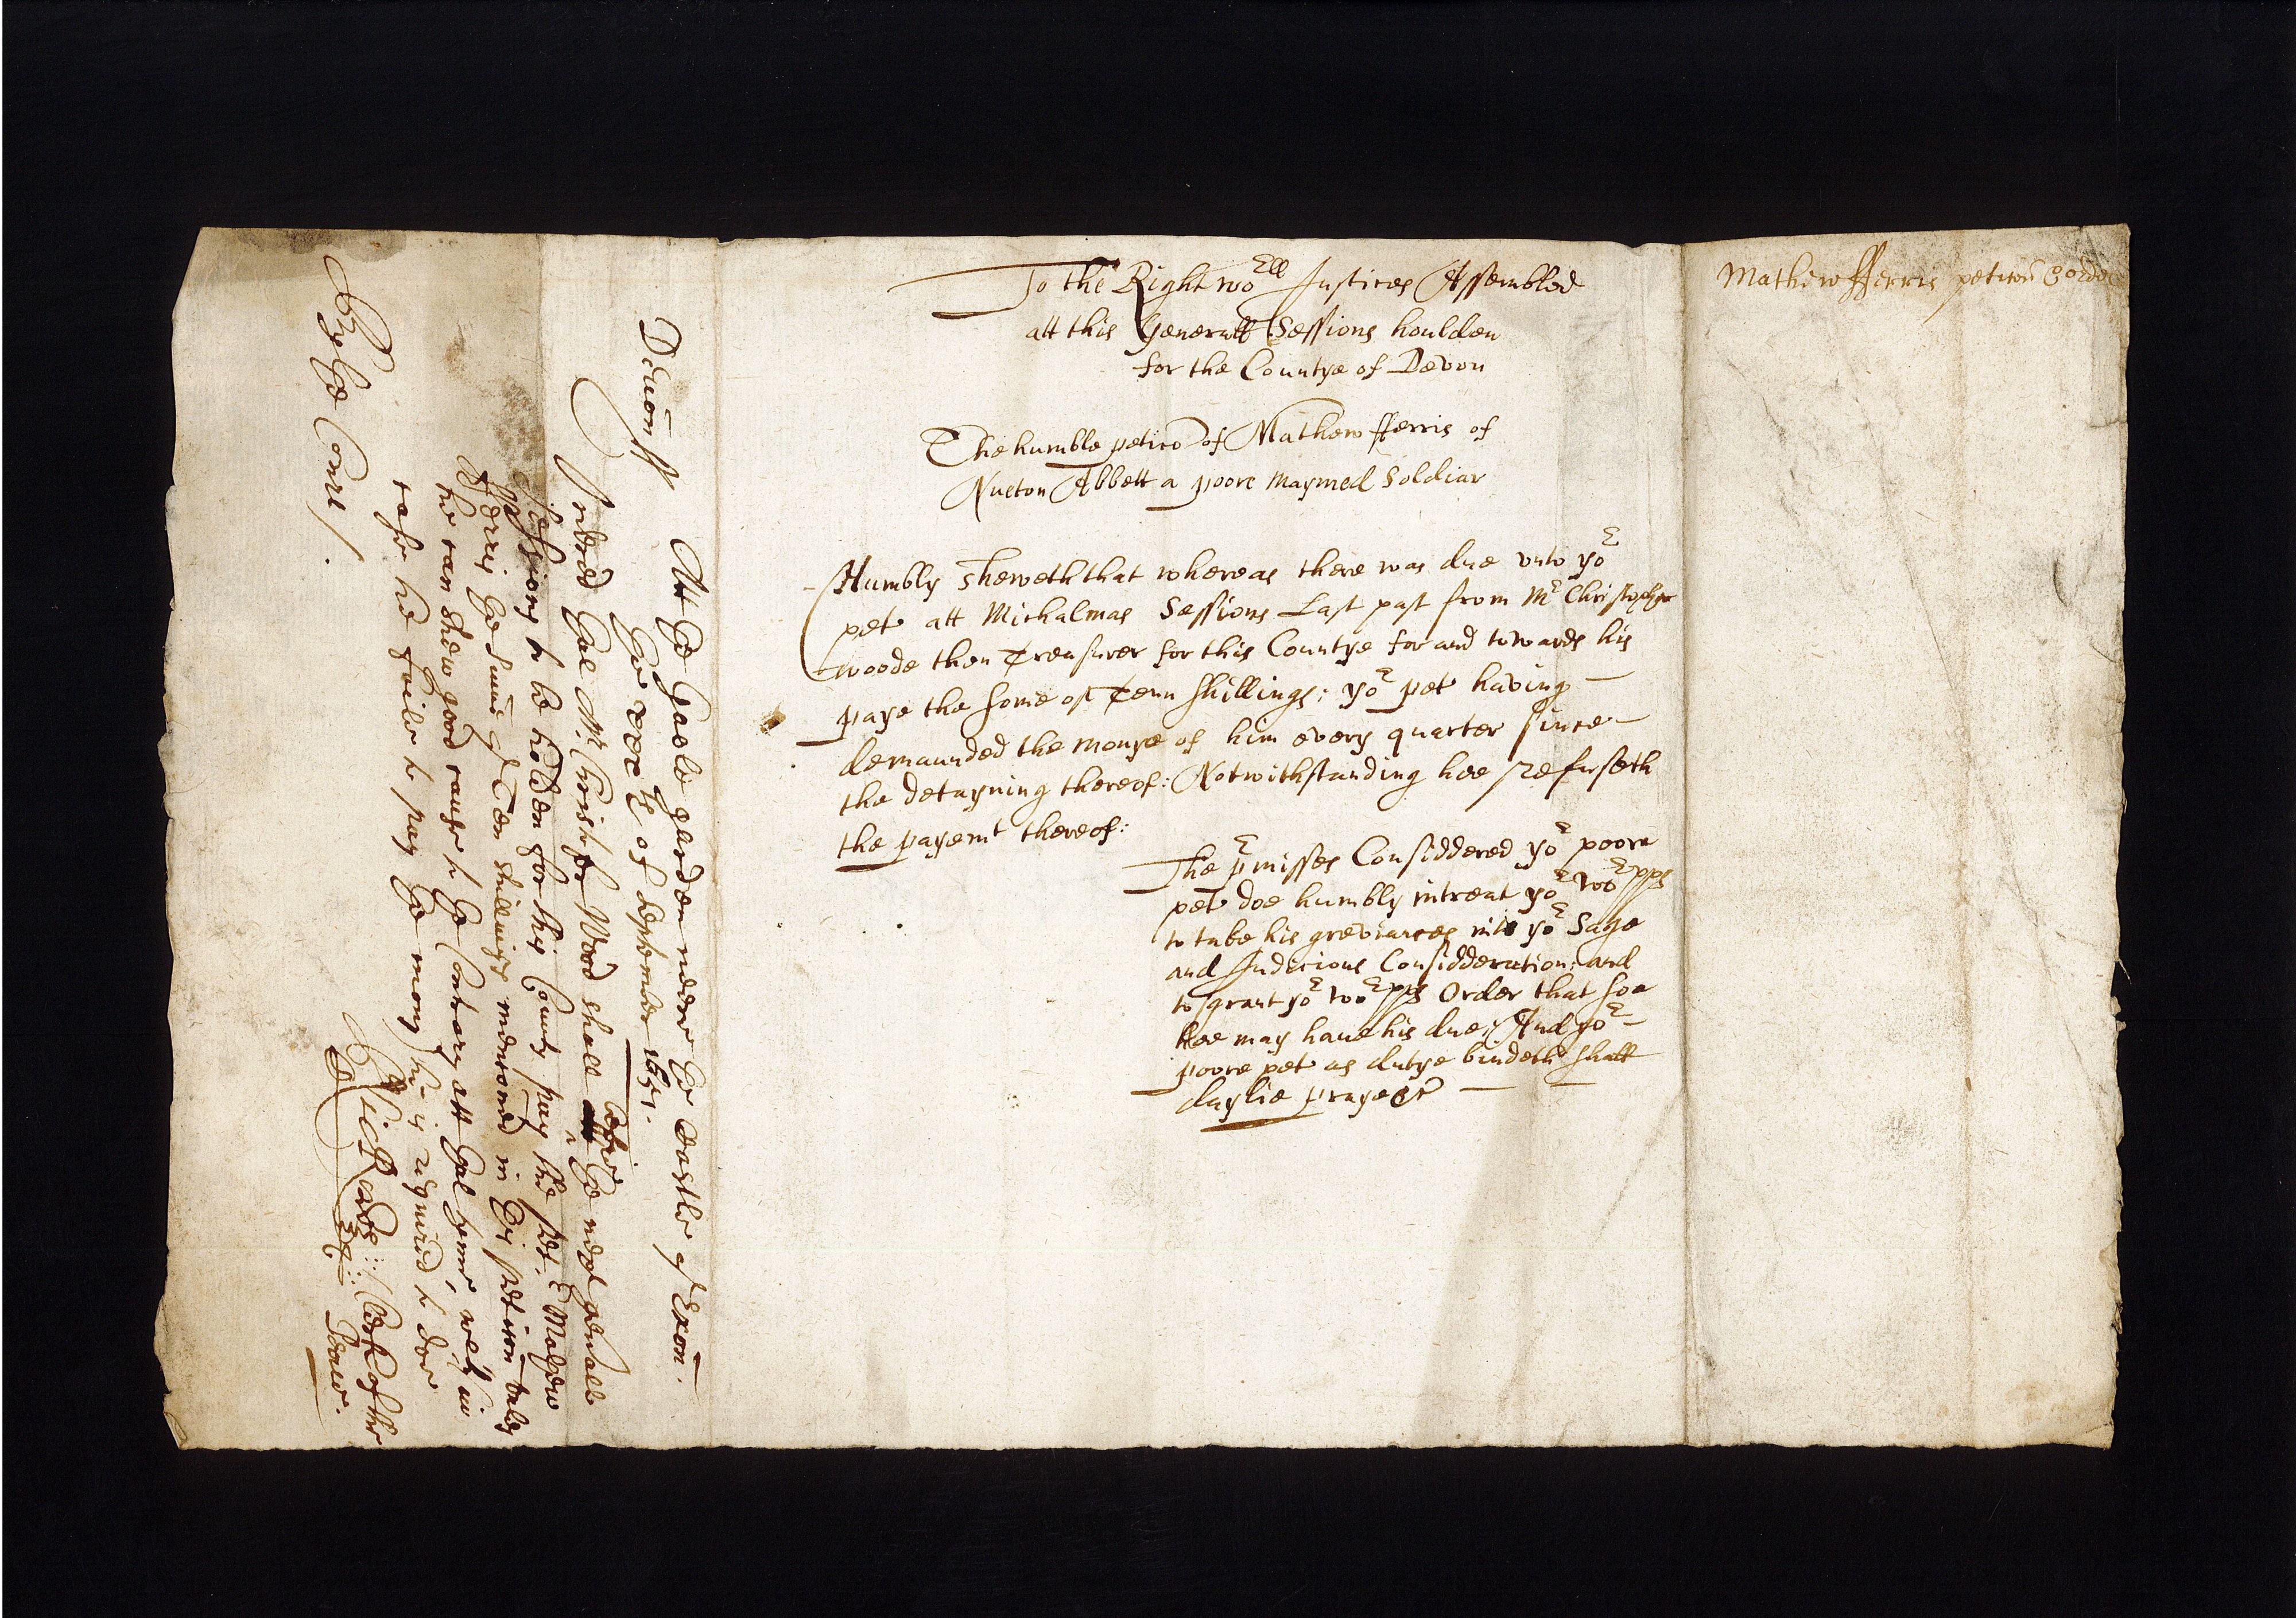 To the Right wo:ll Justices Assembled
att this Generall Sessions houlden
for the Countye of Devon
The humble petico of Mathew fferris of
Nueton Abbett a poore Maymed Soldiar
Humbly sheweth that whereas there was due unto yor
pet att Michalmas Sessions Last past from Mr Christopher
woode then Treasurer for this Countye for and towards his
paye the some of Tenn shillings: yor pet having
demaunded the monye of him every quarter since
the detayning thereof: Notwithstanding hee refuseth
the payemt thereof:
The pmisses Considdered yor poore
pet doe humbly intreat yor worpps
to take his greviances into yor Sage
and Judicious Considderation: and
to grant yor worpps Order that soe
hee may haue his due; And yor
poore pet as dutye bindeth shall
daylie praye &c
Mathew fferris petition & order
Devon ss
Att the Gaole garden neere the Castle of Exon.
the of September 1651.
Ordered that Mr. Christofer Wood shall att before the next genall
Sessions to be holden for this County pay the pet. Mathew
fferris the sume of Ten shillings menconed in this peticon unles
he can shew good cause to the Contrary att that tyme, wch in
case he faile to pay the mony he is required to doe
By the Court.
Clerk of the
Peace.